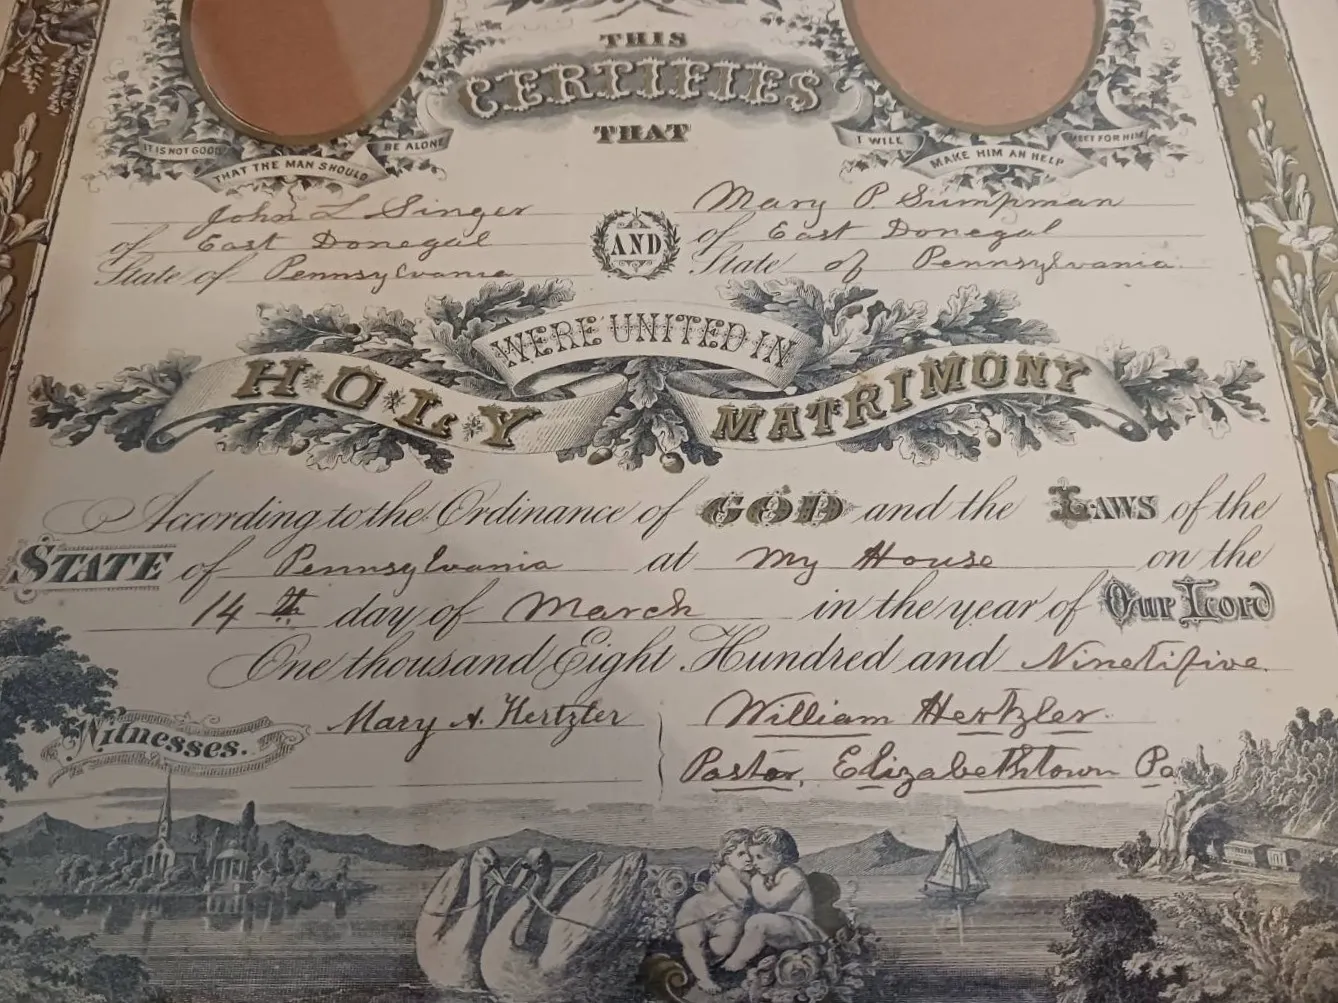 THIS
CERTIFIES
THAT
IT IS NOT GOOD THAT THE MAN SHOULD BE ALONE
I WILL MAKE HIM AN HELP MEET FOR HIM
John L. Singer
of East Donegal
State of Pennsylvania
AND
Mary P. Sumpman
of East Donegal
State of Pennsylvania.
WERE UNITED IN
HOLY MATRIMONY
According to the Ordinance of GOD and the LAWS of the
STATE of Pennsylvania at My House on the
14th day of March in the year of Our Lord
One thousand Eight Hundred and Ninetifive.
Witnesses.
Mary A. Hertzler
William Hertzler.
Pastor, Elizabethtown Pa